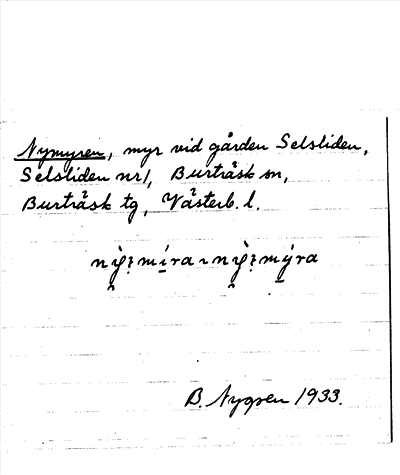 Nymyren, myr vid gården Selsliden,
Selsliden nr 1, Burträsk sn,
Burträsk tg, Västerb. l.
B. Nygren 1933.